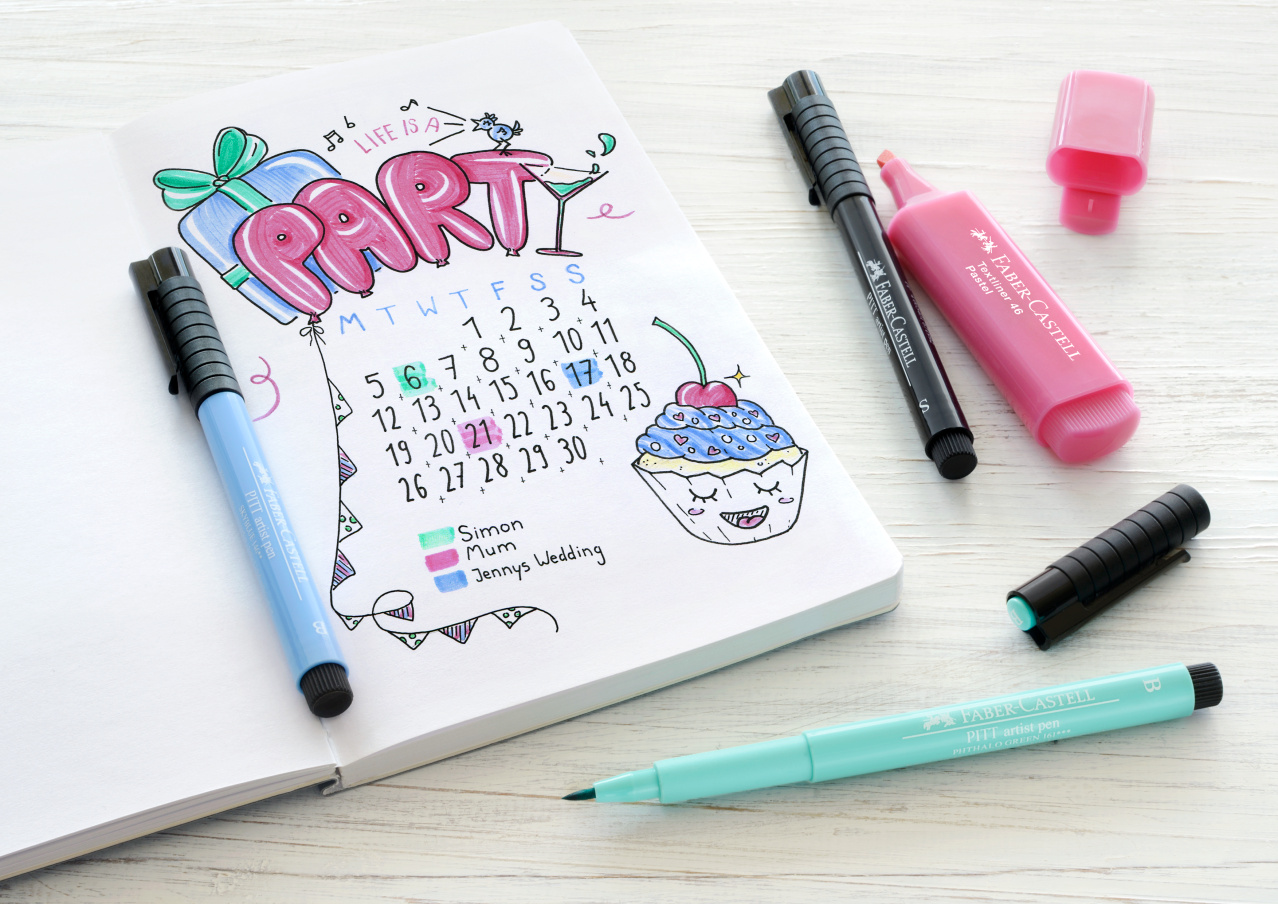 LIFE IS A
PARTY
M T W T F S S
1 2 3 4
5 6 7 8 9 10 11
12 13 14 15 16 17 18
19 20 21 22 23 24 25
26 27 28 29 30
Simon
Mum
Jennys Wedding
FABER-CASTELL
PITT artist pen
B
FABER-CASTELL
PITT artist pen
S
FABER-CASTELL
Textliner 46
Pastel
FABER-CASTELL
PITT artist pen
PHTHALO GREEN 161***
B